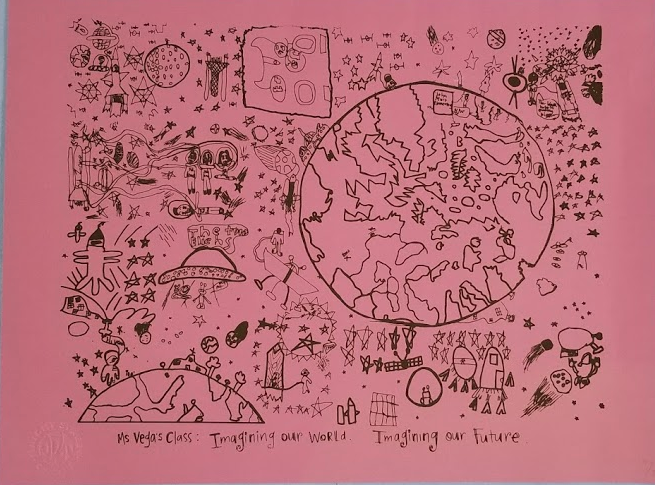 The two
Ms Vega's Class: Imagining our World. Imagining our Future.